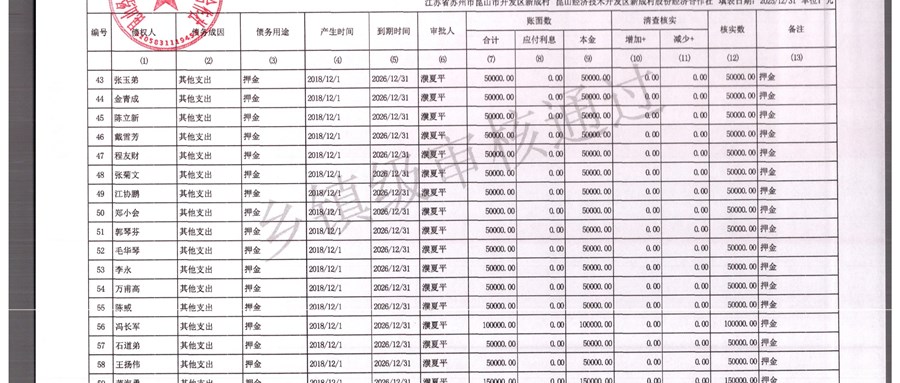 江苏省苏州市昆山市开发区新成村 昆山经济技术开发区新成村股份经济合作社 填表日期: 2025/12/31 单位: 元
编号 债权人 债务成因 债务用途 产生时间 到期时间 审批人 账面数 清查核实 核实数 备注
合计 应付利息 本金 增加+ 减少+
(1) (2) (3) (4) (5) (6) (7) (8) (9) (10) (11) (12) (13)
43 张玉弟 其他支出 押金 2018/12/1 2026/12/31 濮夏平 50000.00 0.00 50000.00 0.00 0.00 50000.00 押金
44 金青成 其他支出 押金 2018/12/1 2026/12/31 濮夏平 50000.00 0.00 50000.00 0.00 0.00 50000.00 押金
45 陈立新 其他支出 押金 2018/12/1 2026/12/31 濮夏平 50000.00 0.00 50000.00 0.00 0.00 50000.00 押金
46 戴雪芳 其他支出 押金 2018/12/1 2026/12/31 濮夏平 50000.00 0.00 50000.00 0.00 0.00 50000.00 押金
47 程友财 其他支出 押金 2018/12/1 2026/12/31 濮夏平 50000.00 0.00 50000.00 0.00 0.00 50000.00 押金
48 张菊文 其他支出 押金 2018/12/1 2026/12/31 濮夏平 50000.00 0.00 50000.00 0.00 0.00 50000.00 押金
49 江协鹏 其他支出 押金 2018/12/1 2026/12/31 濮夏平 50000.00 0.00 50000.00 0.00 0.00 50000.00 押金
50 郑小会 其他支出 押金 2018/12/1 2026/12/31 濮夏平 50000.00 0.00 50000.00 0.00 0.00 50000.00 押金
51 郭琴芬 其他支出 押金 2018/12/1 2026/12/31 濮夏平 50000.00 0.00 50000.00 0.00 0.00 50000.00 押金
52 毛华琴 其他支出 押金 2018/12/1 2026/12/31 濮夏平 50000.00 0.00 50000.00 0.00 0.00 50000.00 押金
53 李永 其他支出 押金 2018/12/1 2026/12/31 濮夏平 50000.00 0.00 50000.00 0.00 0.00 50000.00 押金
54 万甫高 其他支出 押金 2018/12/1 2026/12/31 濮夏平 50000.00 0.00 50000.00 0.00 0.00 50000.00 押金
55 陈威 其他支出 押金 2018/12/1 2026/12/31 濮夏平 50000.00 0.00 50000.00 0.00 0.00 50000.00 押金
56 冯长军 其他支出 押金 2018/12/1 2026/12/31 濮夏平 100000.00 0.00 100000.00 0.00 0.00 100000.00 押金
57 石道弟 其他支出 押金 2018/12/1 2026/12/31 濮夏平 50000.00 0.00 50000.00 0.00 0.00 50000.00 押金
58 王扬伟 其他支出 押金 2018/12/1 2026/12/31 濮夏平 50000.00 0.00 50000.00 0.00 0.00 50000.00 押金
59 其他支出 押金 2018/12/1 2026/12/31 濮夏平 150000.00 0.00 150000.00 0.00 0.00 150000.00 押金
乡镇级审核通过